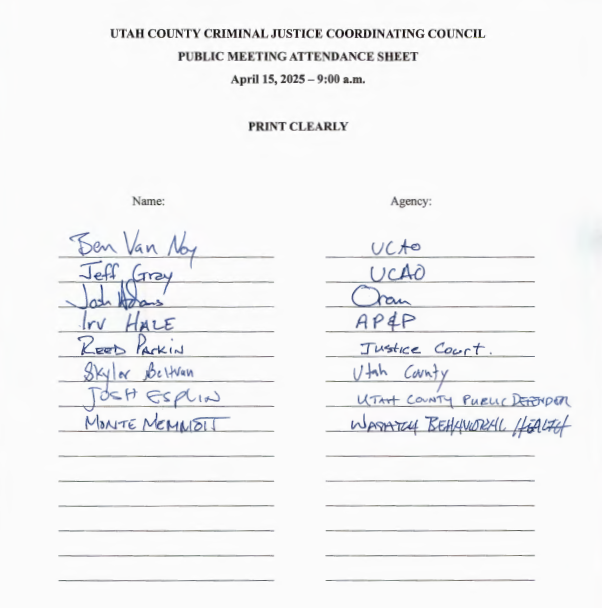 UTAH COUNTY CRIMINAL JUSTICE COORDINATING COUNCIL
PUBLIC MEETING ATTENDANCE SHEET
April 15, 2025 – 9:00 a.m.
PRINT CLEARLY
Name: Agency:
Ben Van Noy UCAO
Jeff Gray UCAO
Josh Adams Orem
Irv HALE AP&P
REED PARKIN Justice Court.
Skyler Beltran Utah County
JOSH ESPLIN UTAH COUNTY PUBLIC DEFENDER
MONTE MEMMOTT WASATCH BEHAVIORAL HEALTH